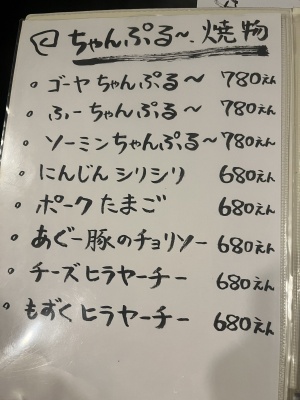 ちゃんぷる〜、焼物
ゴーヤちゃんぷる〜 780えん
ふーちゃんぷる〜 780えん
ソーミンちゃんぷる〜 780えん
にんじんシリシリ 680えん
ポークたまご 680えん
あぐー豚のチョリソー 680えん
チーズヒラヤーチー 680えん
もずくヒラヤーチー 680えん